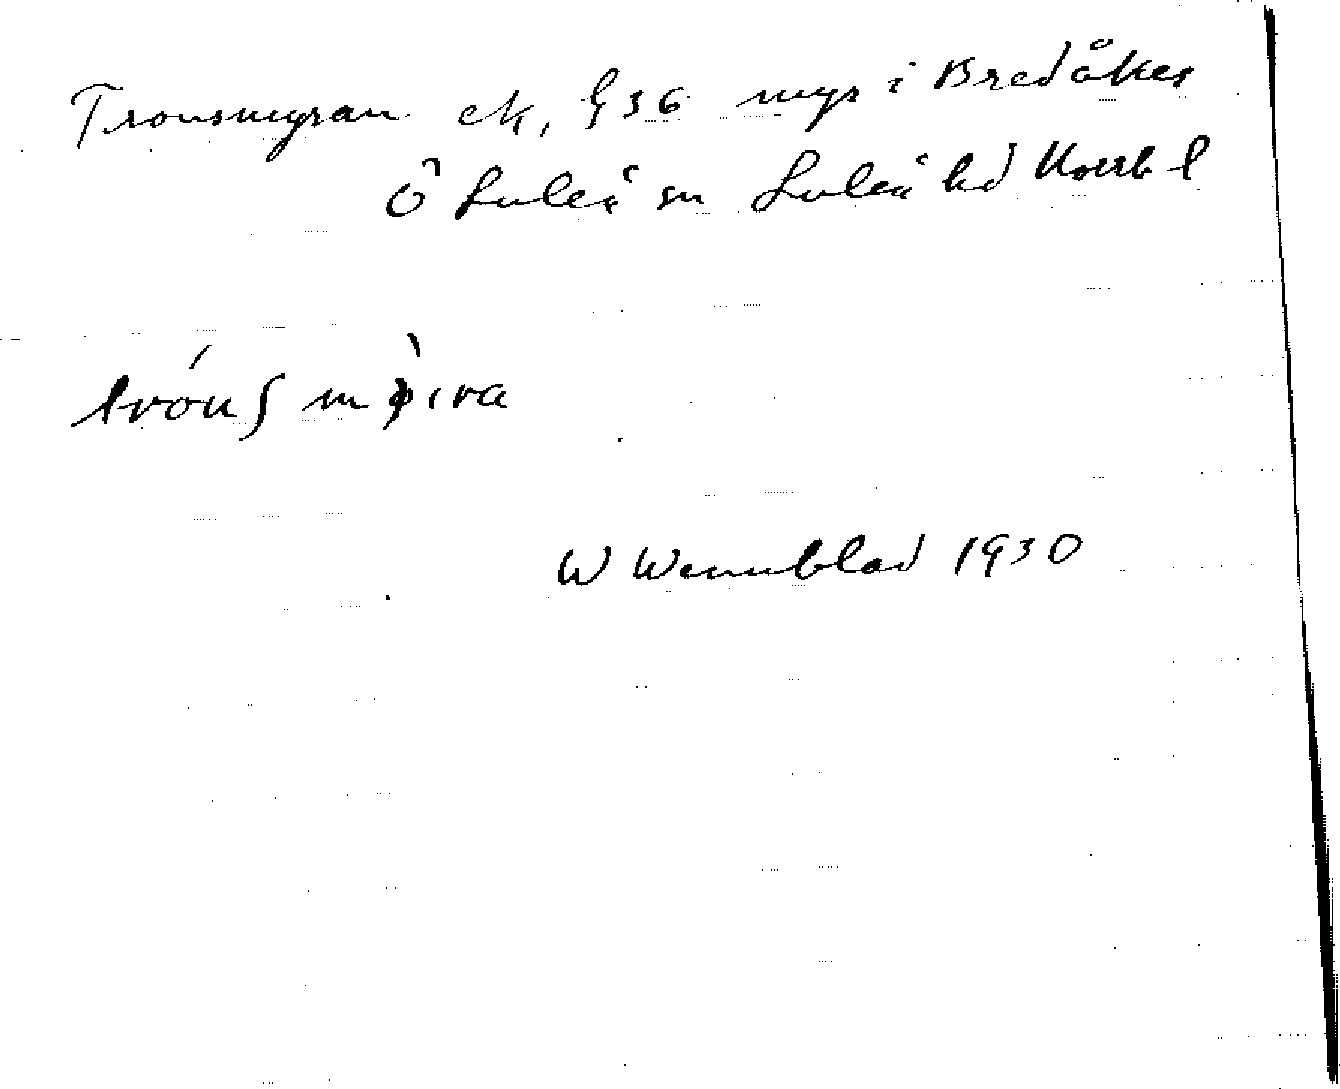 Tronsmyran ek, § 36 myr i Bredåker
Ö Luleå sn Luleå hd Norrb l
tróuʃ mø̀ıra
W Wennblad 1930